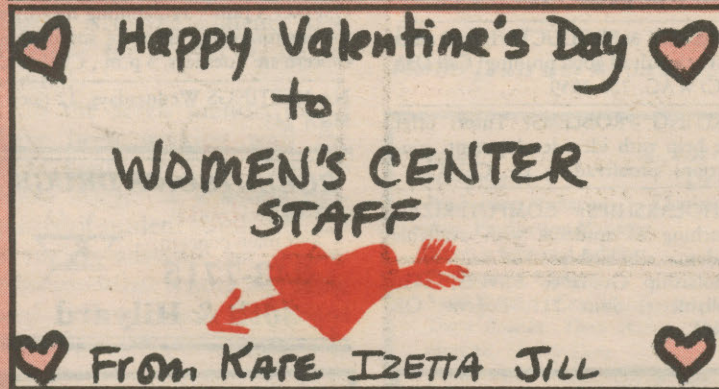 Happy Valentine's Day
to
WOMEN'S CENTER
STAFF
From KATE IZETTA JILL